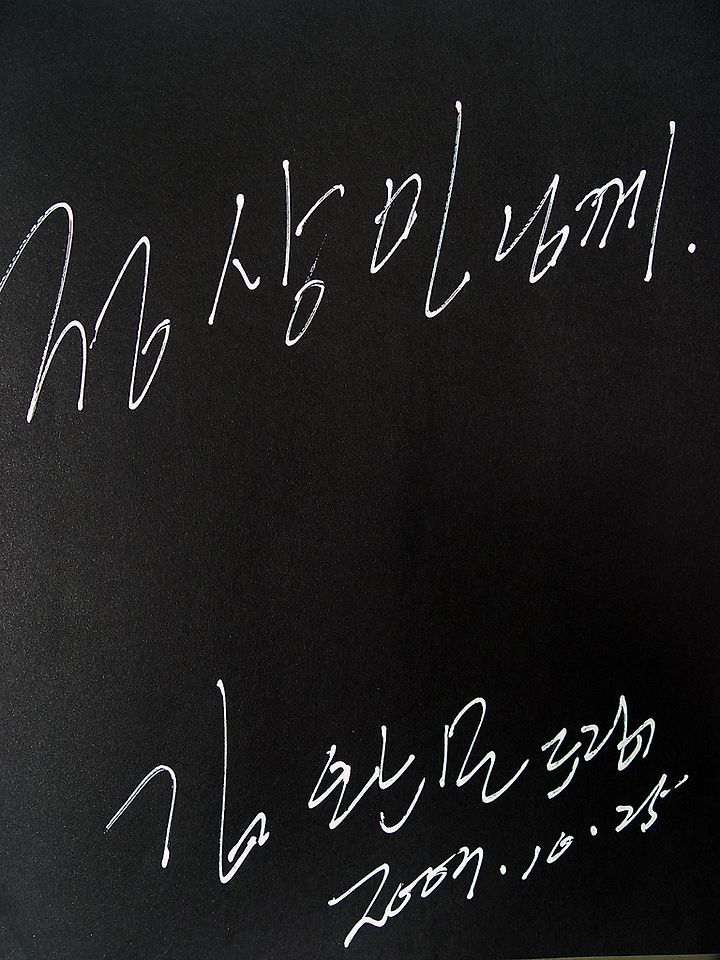 정상민님께.
김 드림
2007.10.25